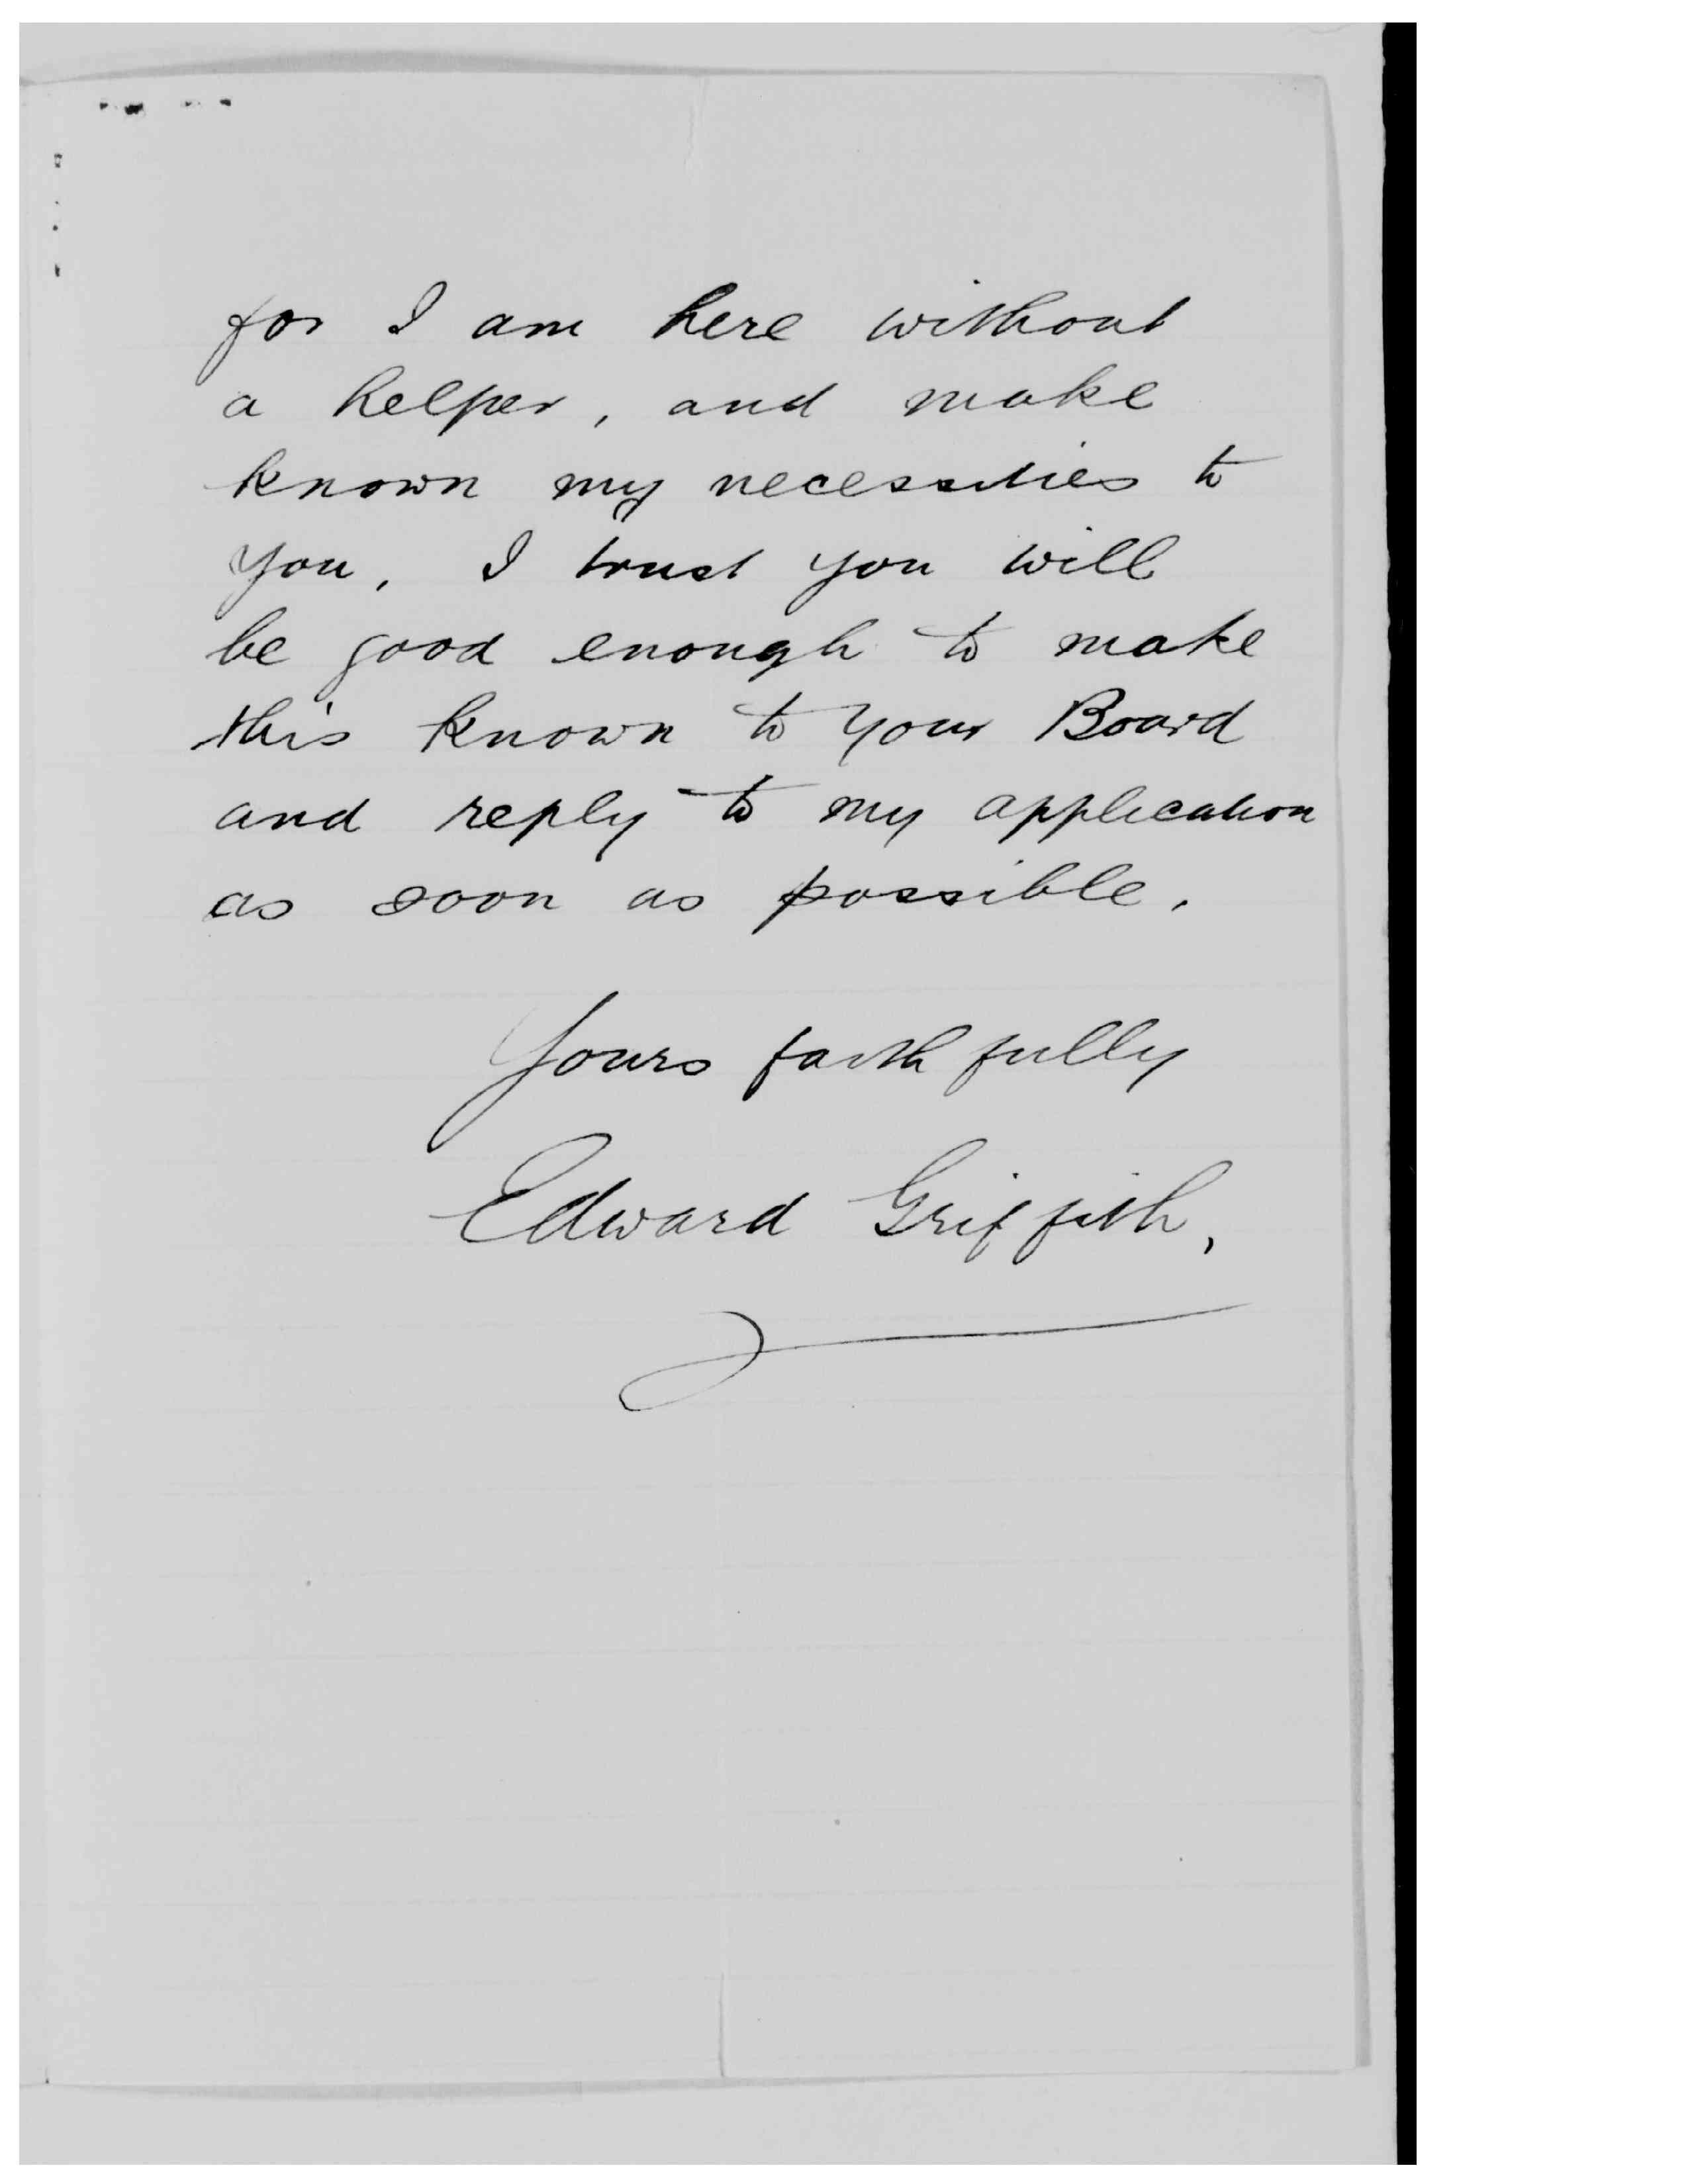 for I am here without
a helper, and make
known my necessities to
you, I trust you will
be good enough to make
this known to your Board
and reply to my application
as soon as possible.
Yours faithfully
Edward Griffith,